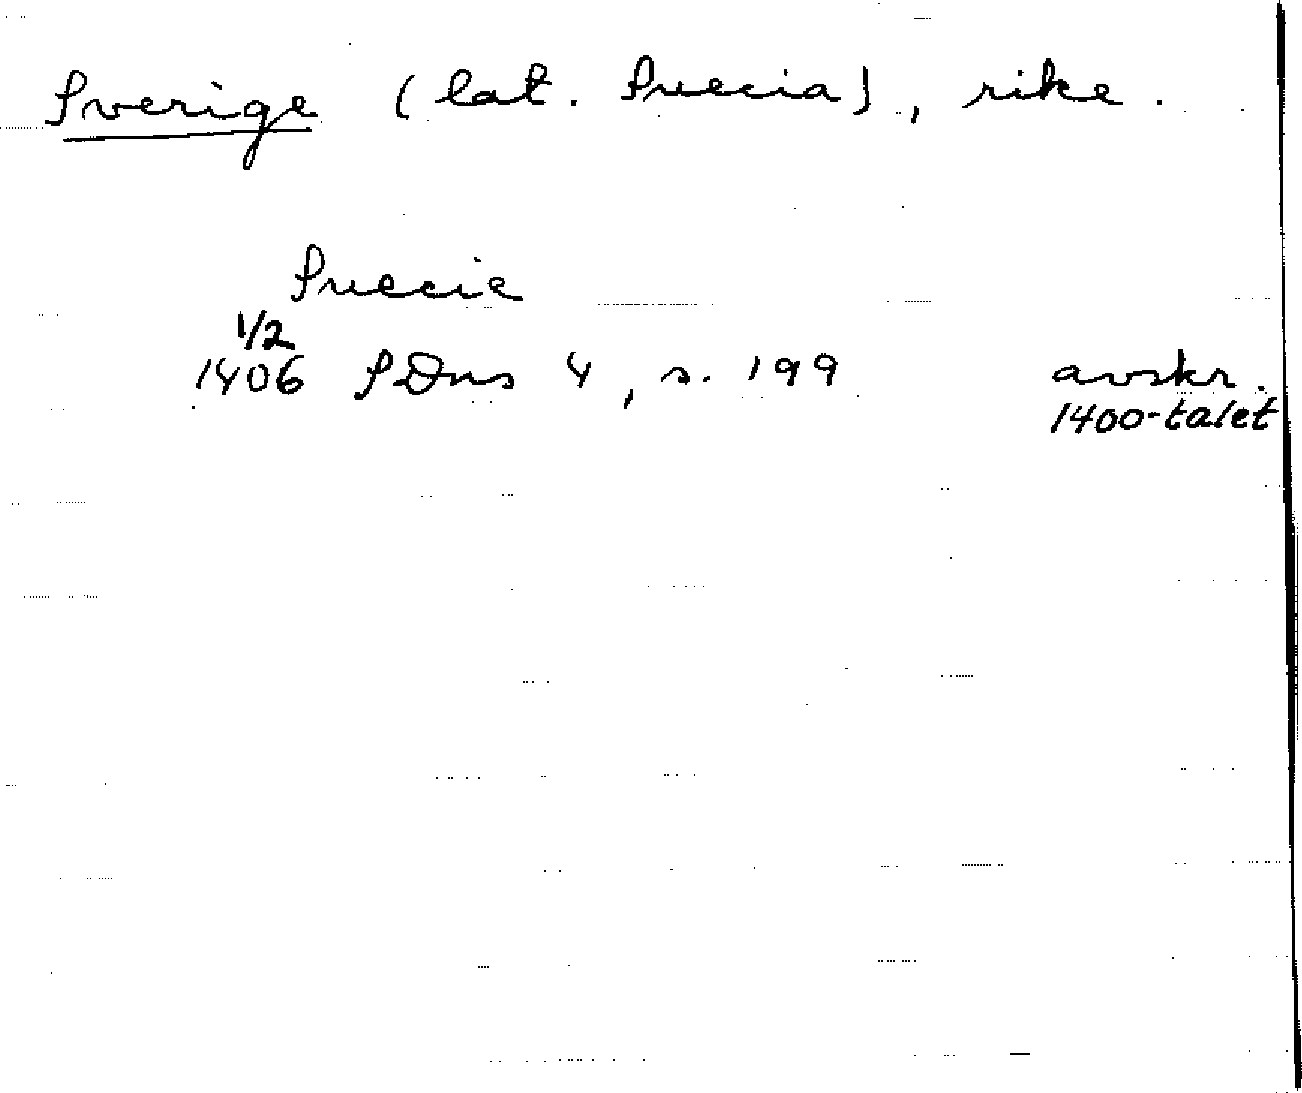 Sverige (lat. Suecia), rike.
Suecie
1/2
1406 SDns 4, s. 199 avskr.
1400-talet